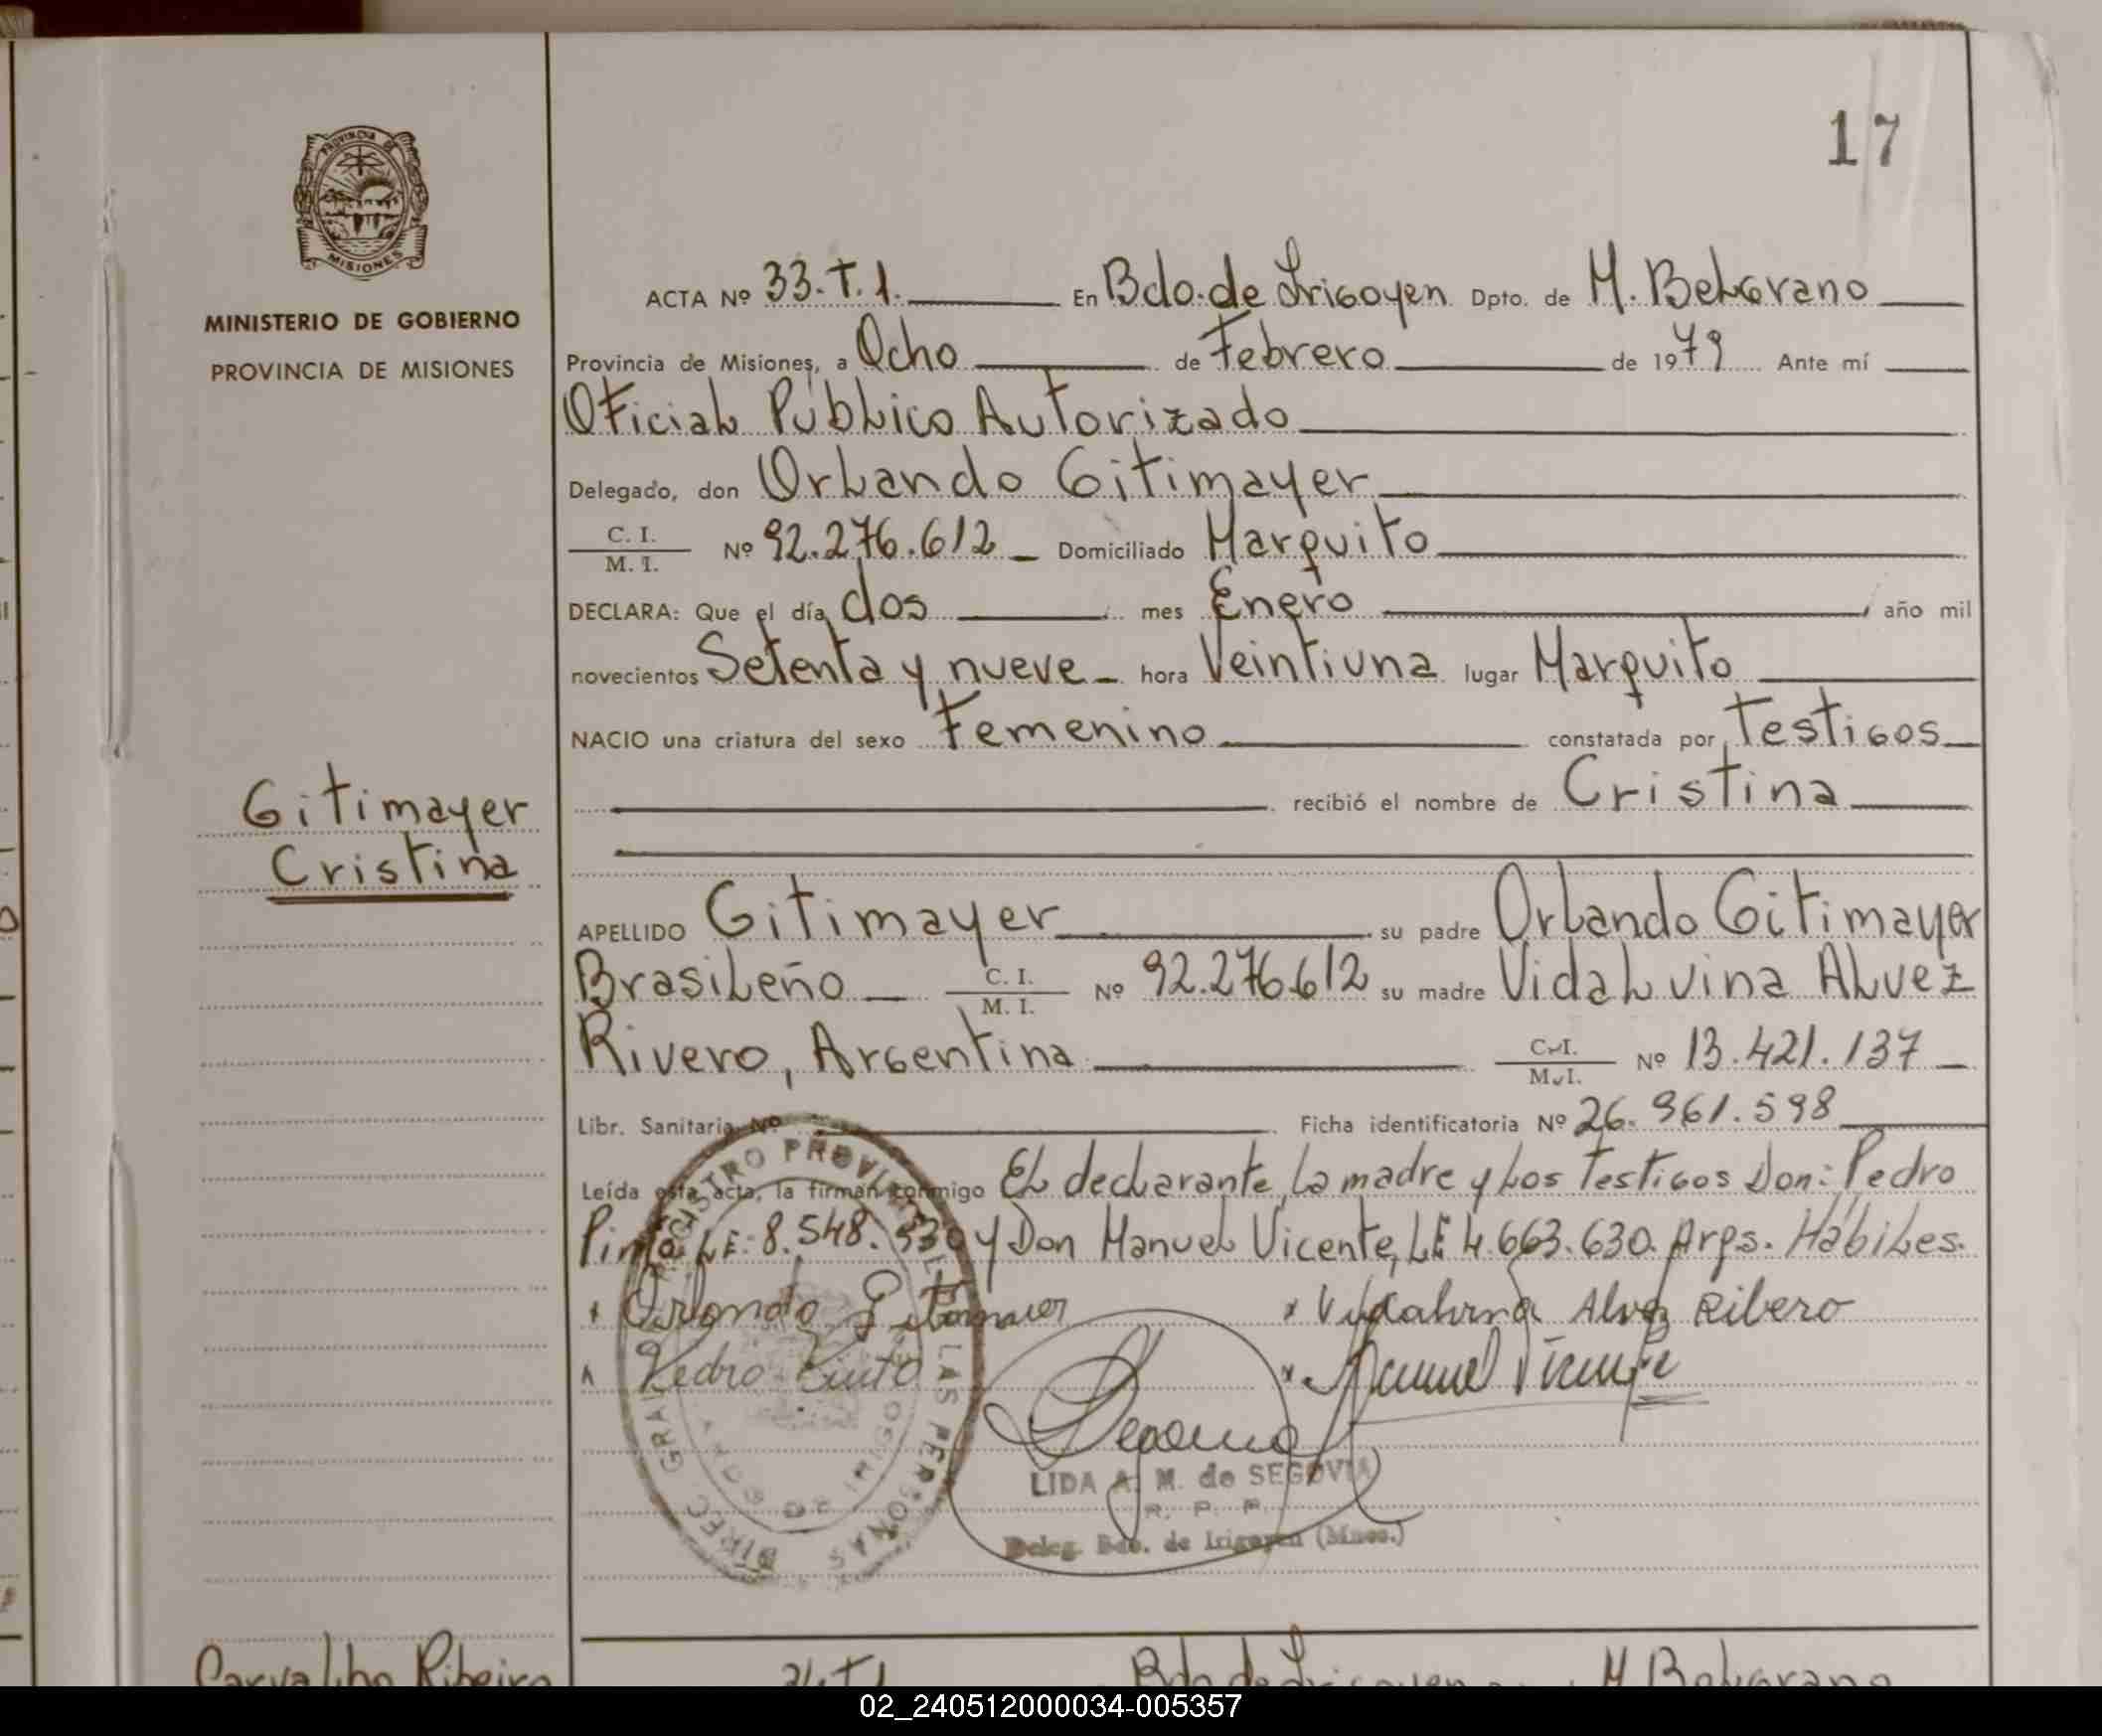 17
PROVINCIA DE
MISIONES
MINISTERIO DE GOBIERNO
PROVINCIA DE MISIONES
Gitimayer
Cristina
ACTA Nº 33.T.1. En Bdo. de Irigoyen Dpto. de M. Belgrano
Provincia de Misiones, a Ocho de Febrero de 1979 Ante mí
Oficial Público Autorizado
Delegado, don Orlando Gitimayer
C. I.
M. I. Nº 92.276.612 Domiciliado Marquito
DECLARA: Que el día dos mes Enero año mil
novecientos Setenta y nueve hora Veintiuna lugar Marquito
NACIO una criatura del sexo Femenino constatada por Testigos
recibió el nombre de Cristina
APELLIDO Gitimayer su padre Orlando Gitimayer
Brasileño C. I.
M. I. Nº 92.276.612 su madre Vidalvina Alvez
Rivero, Argentina C.I.
M.I. Nº 13.421.137
Libr. Sanitaria Nº Ficha identificatoria Nº 26.961.598
Leída esta acta, la firman conmigo El declarante, la madre y los Testigos Don: Pedro
Pinto LE: 8.548.330 y Don Manuel Vicente, LE 4.663.630. Arps. Hábiles.
x Orlando x Vidalvina Alvez Ribero
Pedro Pinto x Manuel
LIDA A. M. de SEGOVIA
R. P. P.
Deleg. Bdo. de Irigoyen (Mnes.)
DIREC GRAL REGISTRO PROVINCIAL DE LAS PERSONAS
Carvalho Ribeiro Bdo de Irigoyen M Belgrano
02_240512000034-005357